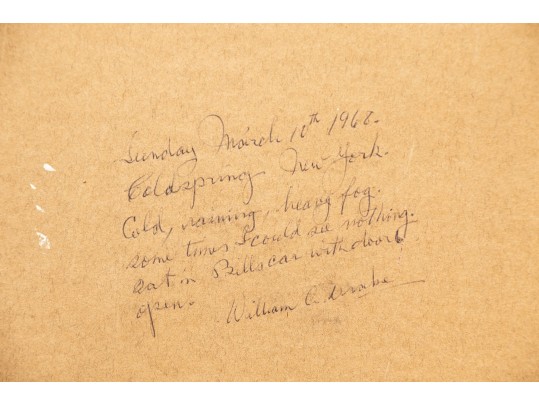 Sunday March 10th 1968.
Coldspring New York.
Cold, raining, heavy fog.
some times I could see nothing.
sat in Bills car with doors
open.
William C. Drake